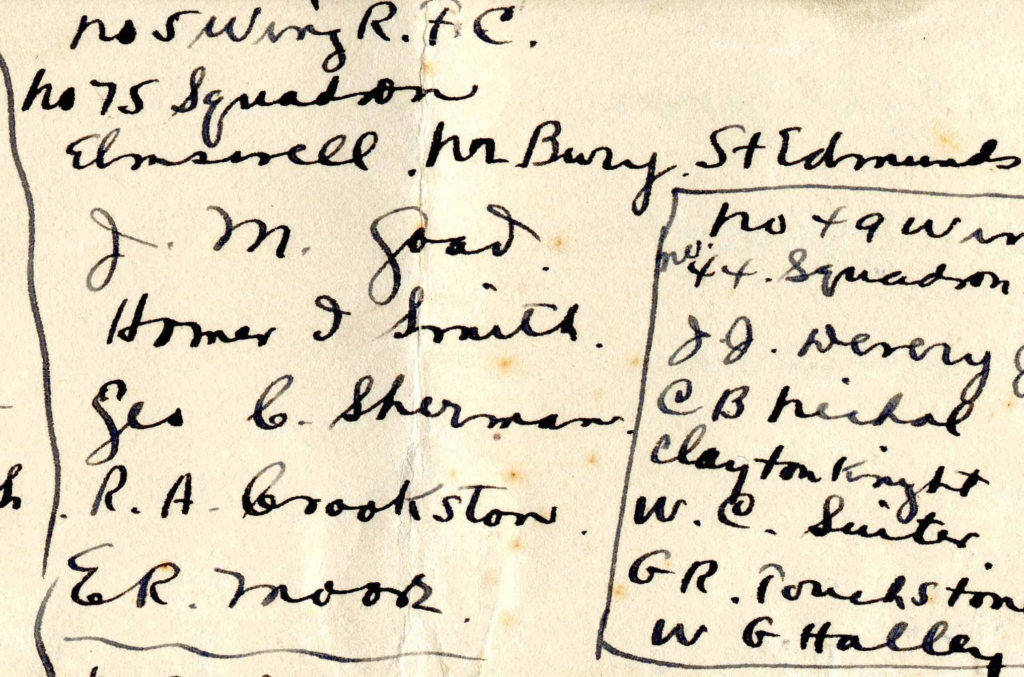 No 5 Wing R.F.C.
No 75 Squadron
Elmswell. Nr Bury. St Edmunds
J. M. Goad.
Homer I Smith.
Geo C. Sherman.
R. A. Crookston.
E R. Moore.
No 49 Win
No. 44. Squadron
J J. Devery
C B Nichol
Clayton Knight
W. C. Suiter.
G R. Touchston
W G Halley